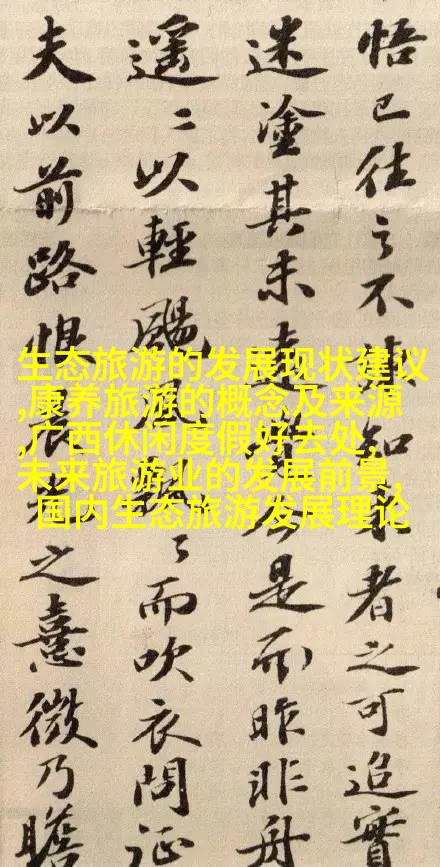 悟已往之不知者之可追實
迷塗其未遠是而昨非舟
遥〻以輕颺風飄〻而吹衣問征
夫以前路恨晨之熹微乃瞻
生态旅游的发展现状建议
,康养旅游的概念及来源
,广西休闲度假好去处,
未来旅游业的发展前景,
国内生态旅游发展理论